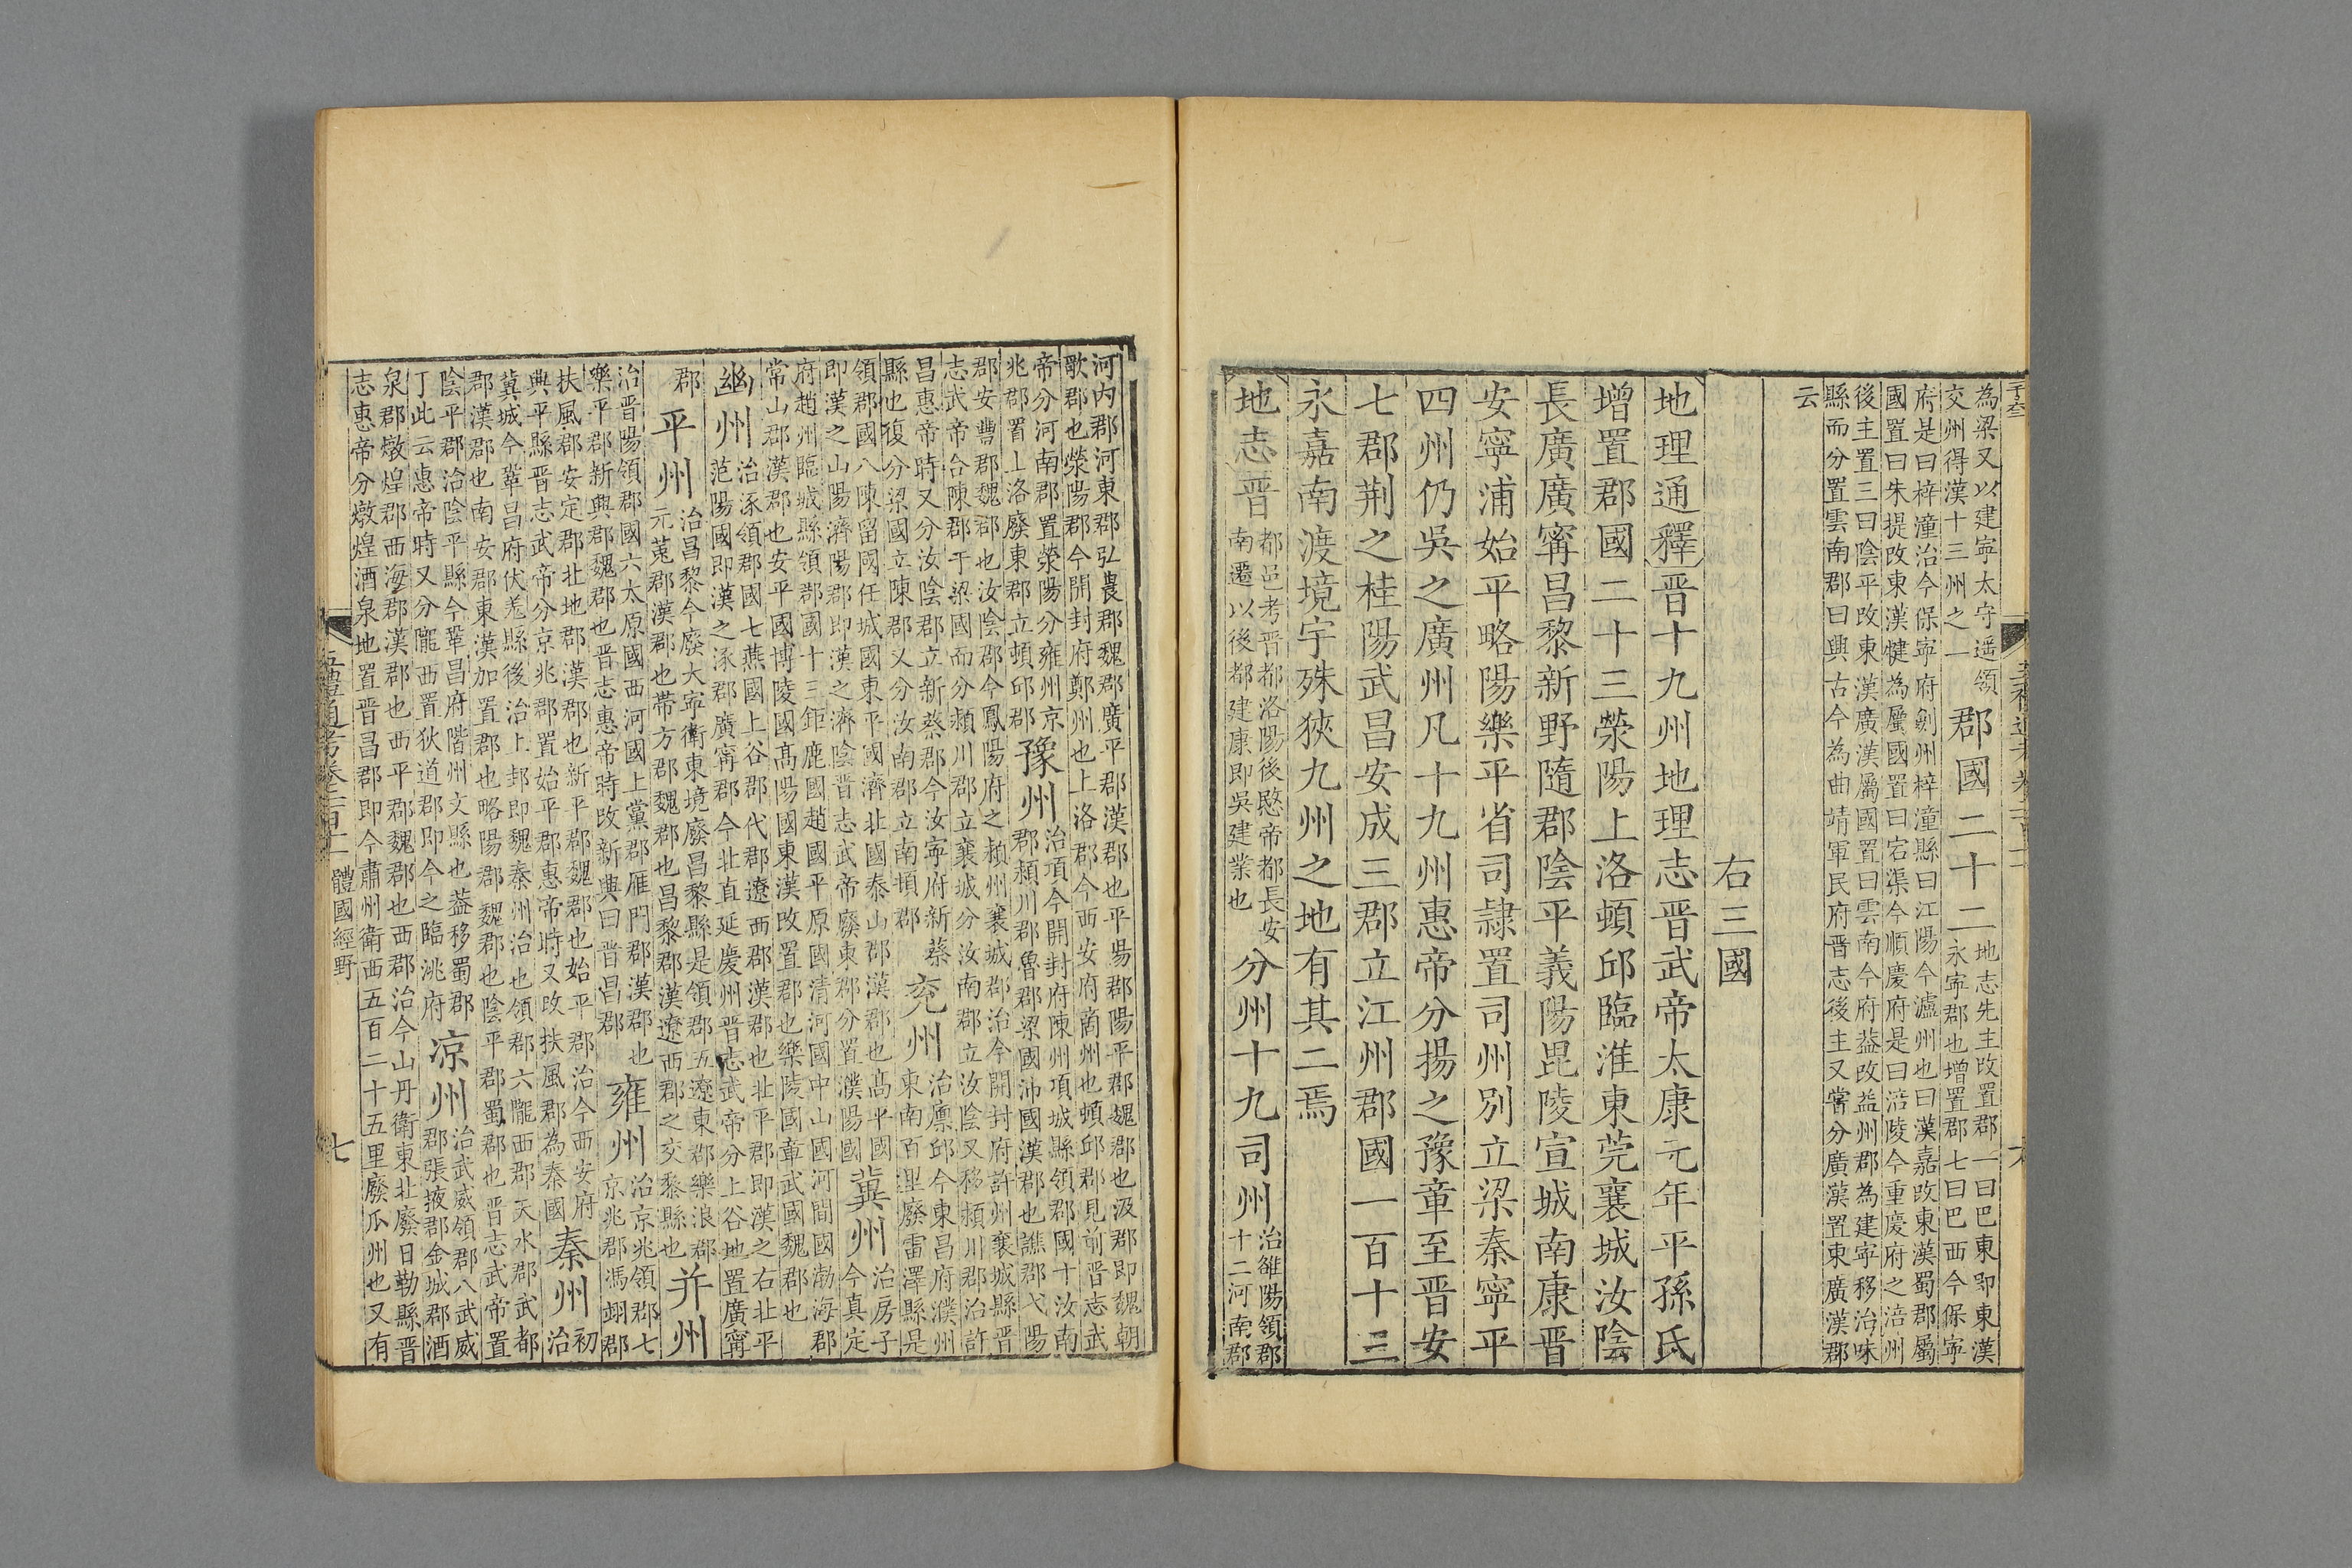 為梁又以建寧太守遥領
交州得漢十三州之一
郡國二十二
地志先主改置郡一曰巴東即東漢
永寧郡也增置郡七曰巴西今保寧
府是曰梓潼治今保寧府劍州梓潼縣曰江陽今瀘州也曰漢嘉改東漢蜀郡屬
國置曰朱提改東漢犍為屬國置曰宕渠今順慶府是曰涪陵今重慶府之涪州
後主置三曰陰平改東漢廣漢屬國置曰雲南今府益改益州郡為建寧移治味
縣而分置雲南郡曰興古今為曲靖軍民府晋志後主又嘗分廣漢置東廣漢郡
云
右三國
地理通釋晋十九州地理志晋武帝太康元年平孫氏
增置郡國二十三滎陽上洛頓邱臨淮東莞襄城汝陰
長廣廣寗昌黎新野隨郡陰平義陽毘陵宣城南康晋
安寧浦始平略陽樂平省司隷置司州別立梁秦寧平
四州仍吳之廣州凡十九州惠帝分揚之豫章至晋安
七郡荆之桂陽武昌安成三郡立江州郡國一百十三
永嘉南渡境宇殊狹九州之地有其二焉
地志晋
都邑考晋都洛陽後愍帝都長安
南遷以後都建康即吳建業也
分州十九司州
治雒陽領郡
十二河南郡
河内郡河東郡弘農郡魏郡廣平郡漢郡也平陽郡陽平郡魏郡也汲郡即魏朝
歌郡也滎陽郡今開封府鄭州也上洛郡今西安府商州也頓邱郡見前晋志武
帝分河南郡置滎陽分雍州京
兆郡置上洛廢東郡立頓邱郡
豫州
治項今開封府陳州項城縣領郡國十汝南
郡潁川郡魯郡梁國沛國漢郡也譙郡弋陽
郡安豊郡魏郡也汝陰郡今鳳陽府之潁州襄城郡治今開封府許州襄城縣晋
志武帝合陳郡于梁國而分潁川郡立襄城分汝南郡立汝陰又移潁川郡治許
昌惠帝時又分汝陰郡立新蔡郡今汝寧府新蔡
縣也復分梁國立陳郡又分汝南郡立南頓郡
兖州
治廩邱今東昌府濮州
東南百里廢雷澤縣是
領郡國八陳留國任城國東平國濟北國泰山郡漢郡也高平國
即漢之山陽濟陽郡即漢之濟陰晋志武帝廢東郡分置濮陽國
冀州
治房子
今真定
府趙州臨城縣領郡國十三鉅鹿國趙國平原國清河國中山國河間國渤海郡
常山郡漢郡也安平國博陵國高陽國東漢改置郡也樂陵國章武國魏郡也
幽州
治涿領郡國七燕國上谷郡代郡遼西郡漢郡也北平郡即漢之右北平
范陽國即漢之涿郡廣寗郡今北直延慶州晋志武帝分上谷地置廣寗
郡
平州
治昌黎今廢大寧衛東境廢昌黎縣是領郡五遼東郡樂浪郡
元菟郡漢郡也帶方郡魏郡也昌黎郡漢遼西郡之交黎縣也
并州
治晋陽領郡國六太原國西河國上黨郡雁門郡漢郡也
樂平郡新興郡魏郡也晋志惠帝時改新興曰晋昌郡
雍州
治京兆領郡七
京兆郡馮翊郡
扶風郡安定郡北地郡漢郡也新平郡魏郡也始平郡治今西安府
興平縣晋志武帝分京兆郡置始平郡惠帝時又改扶風郡為秦國
秦州
初
治
冀城今鞏昌府伏羌縣後治上邽即魏秦州治也領郡六隴西郡天水郡武都
郡漢郡也南安郡東漢加置郡也略陽郡魏郡也陰平郡蜀郡也晋志武帝置
陰平郡治陰平縣今鞏昌府階州文縣也葢移蜀郡
丁此云惠帝時又分隴西置狄道郡即今之臨洮府
凉州
治武威領郡八武威
郡張掖郡金城郡酒
泉郡燉煌郡西海郡漢郡也西平郡魏郡也西郡治今山丹衛東北廢日勒縣晋
志惠帝分燉煌酒泉地置晋昌郡即今肅州衛西五百二十五里廢瓜州也又有
五禮通考卷二百十一
體國經野
七